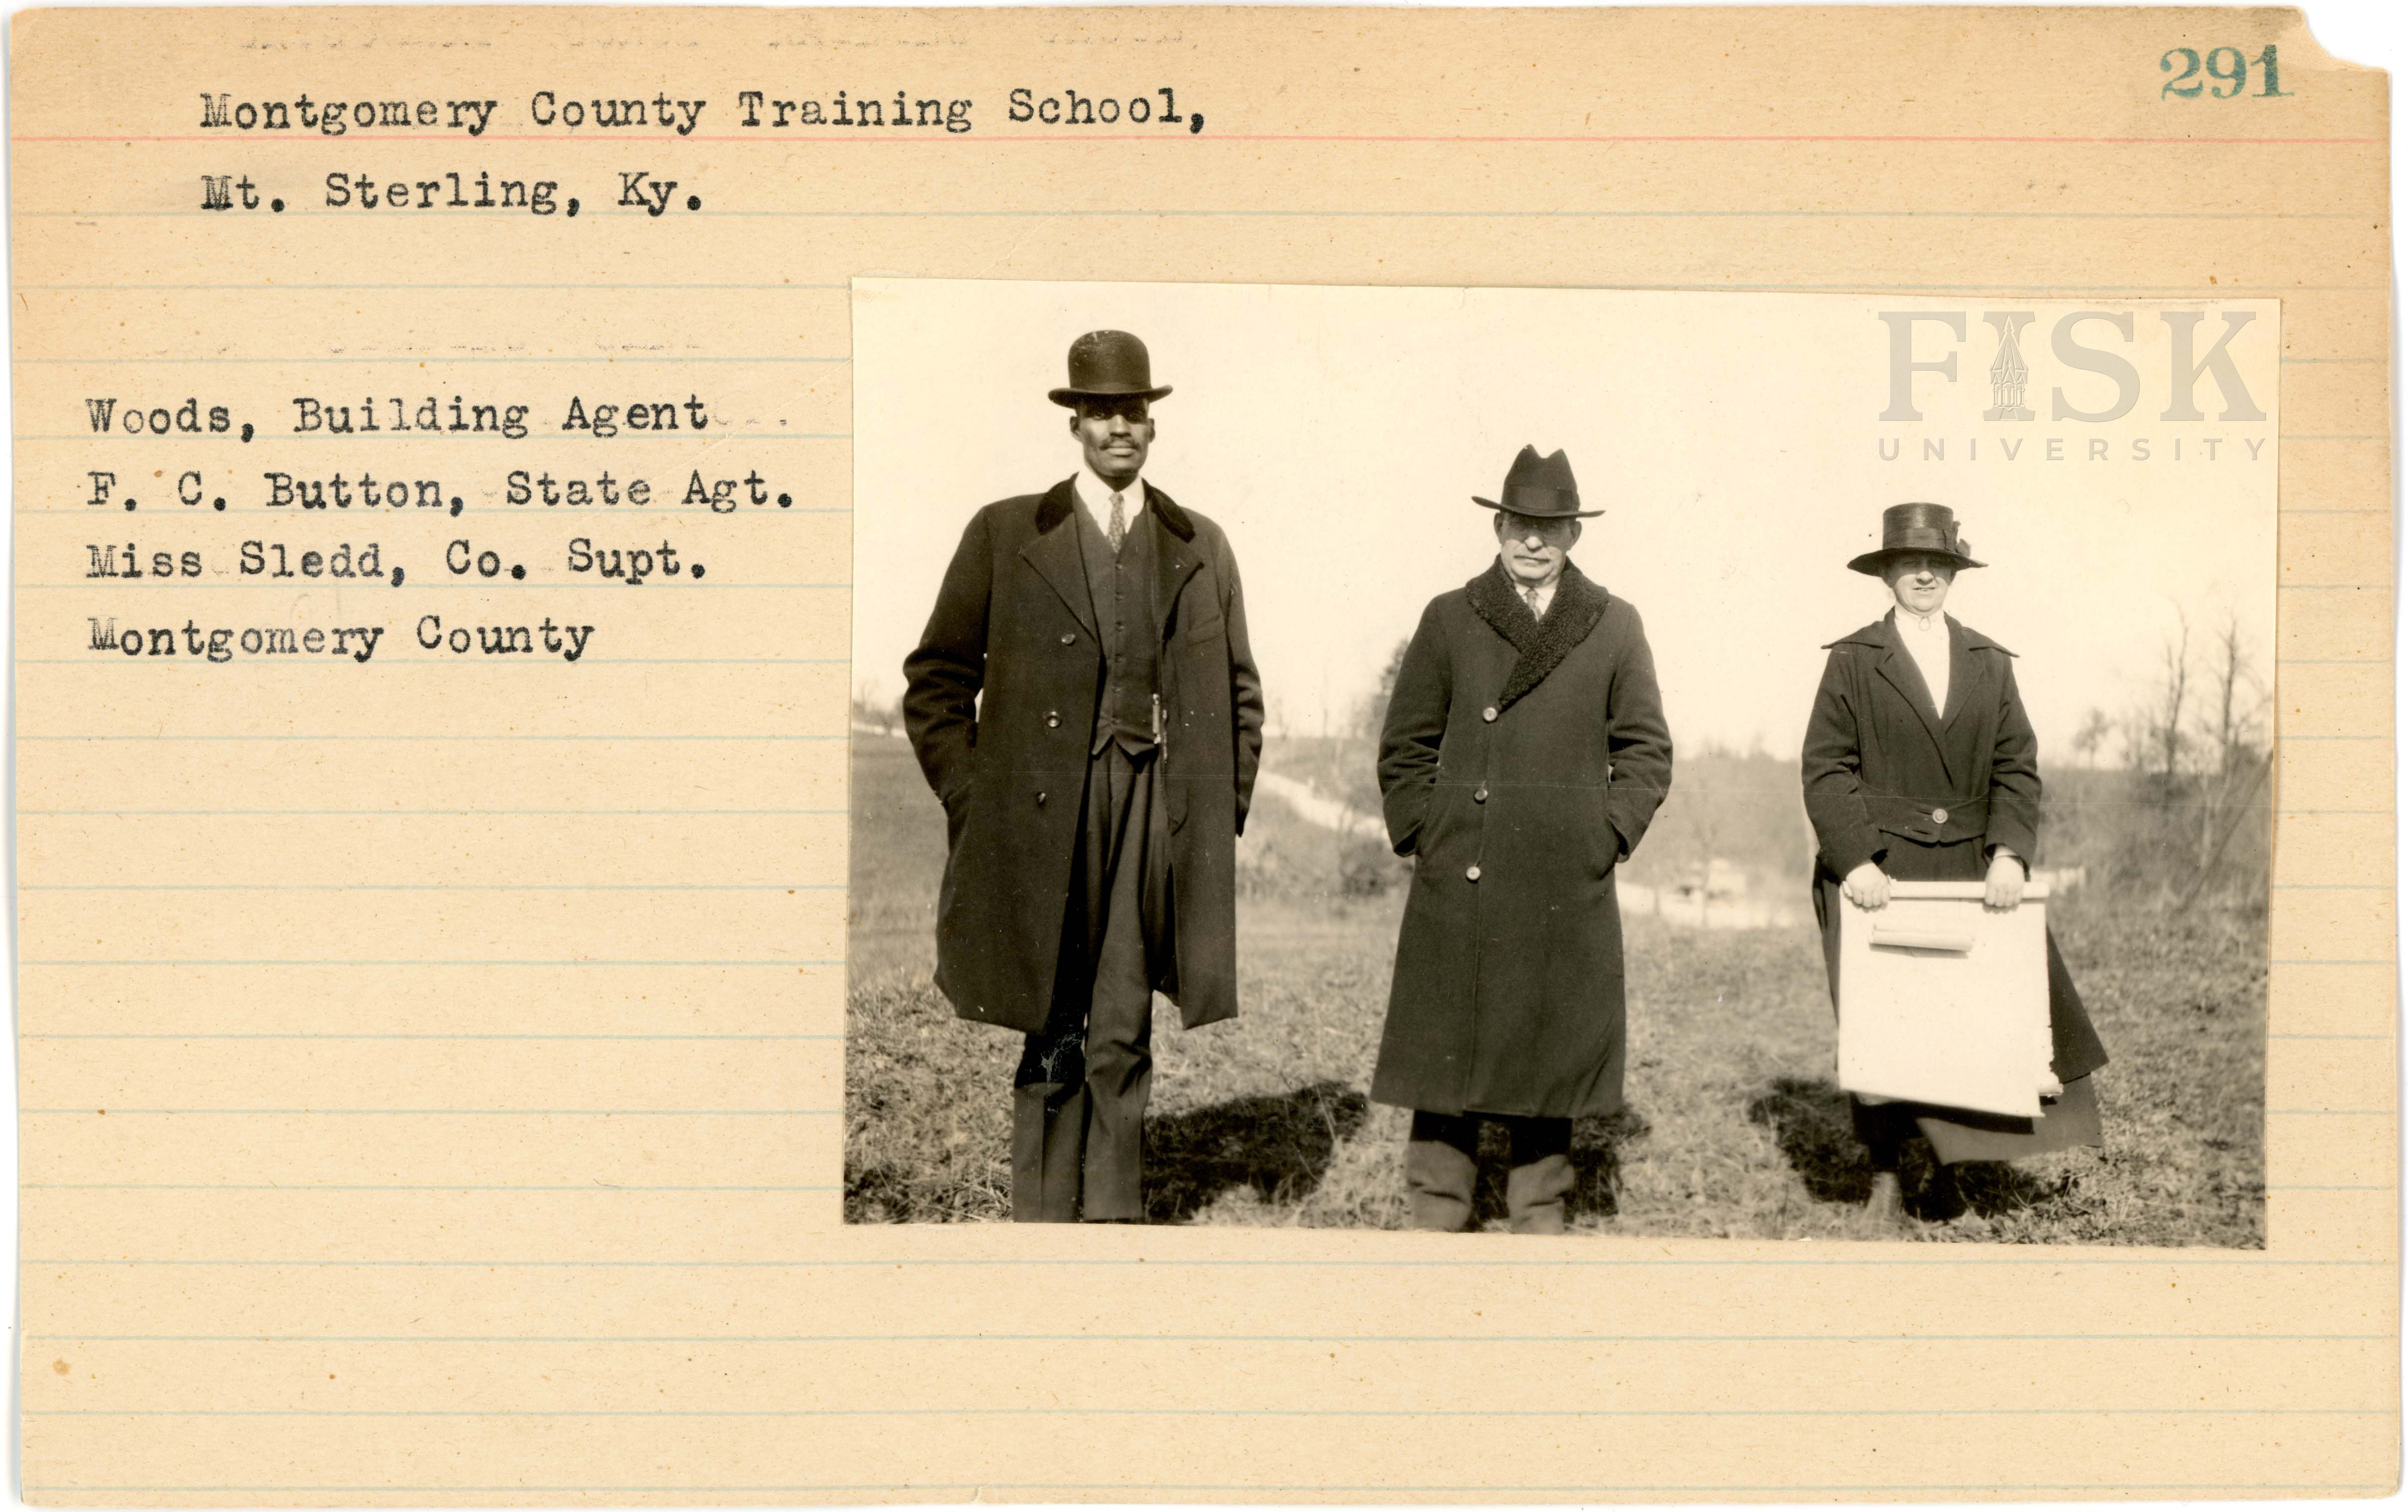 291
Montgomery County Training School,
Mt. Sterling, Ky.
Woods, Building Agent
F. C. Button, State Agt.
Miss Sledd, Co. Supt.
Montgomery County
FISK
UNIVERSITY